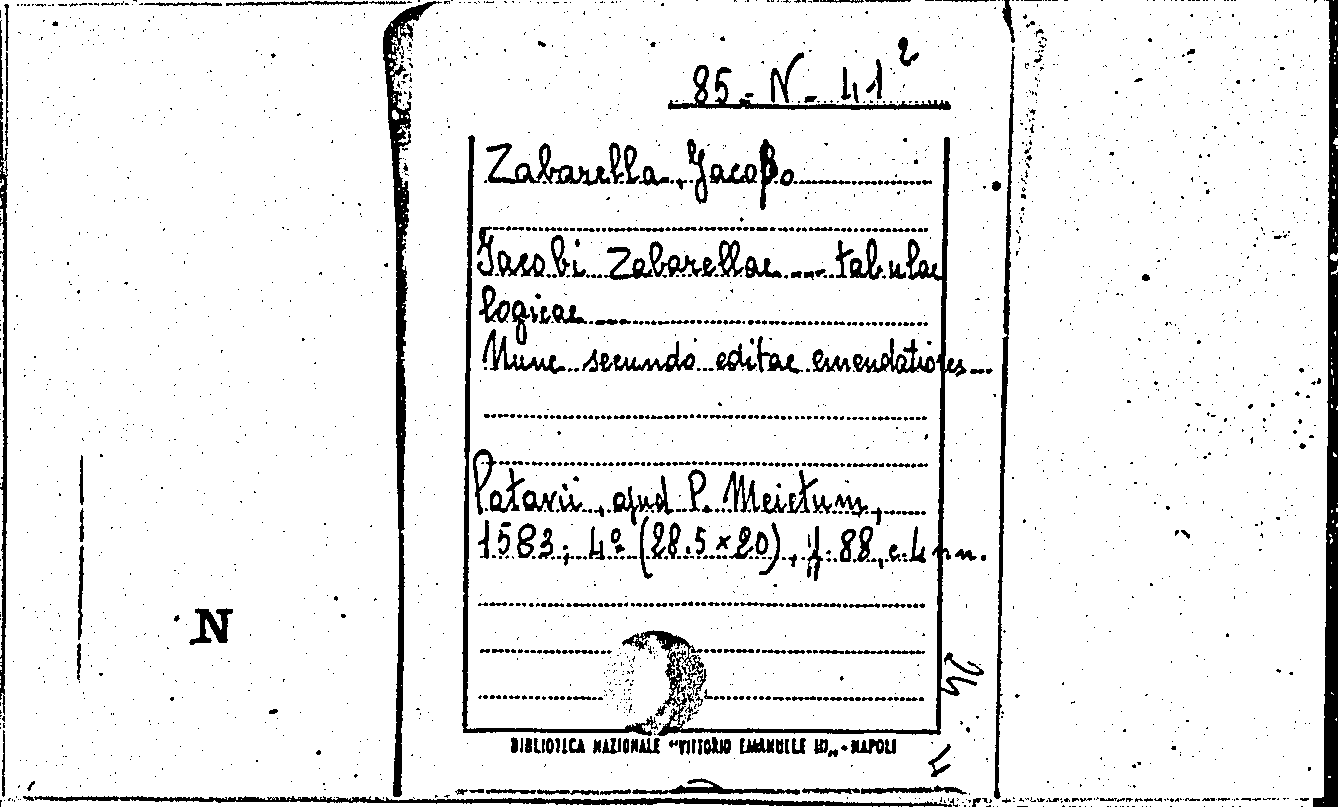 85-N-41²
Zabarella, Jacopo
Jacobi Zabarellae ... tabulae
logicae ...
Nunc secundo editae emendatiores ...
Patavii, apud P. Meietum,
1583; 4º (28.5×20), ff. 88, c. 4 nn.
N
24
4
BIBLIOTECA NAZIONALE "VITTORIO EMANUELE III" - NAPOLI